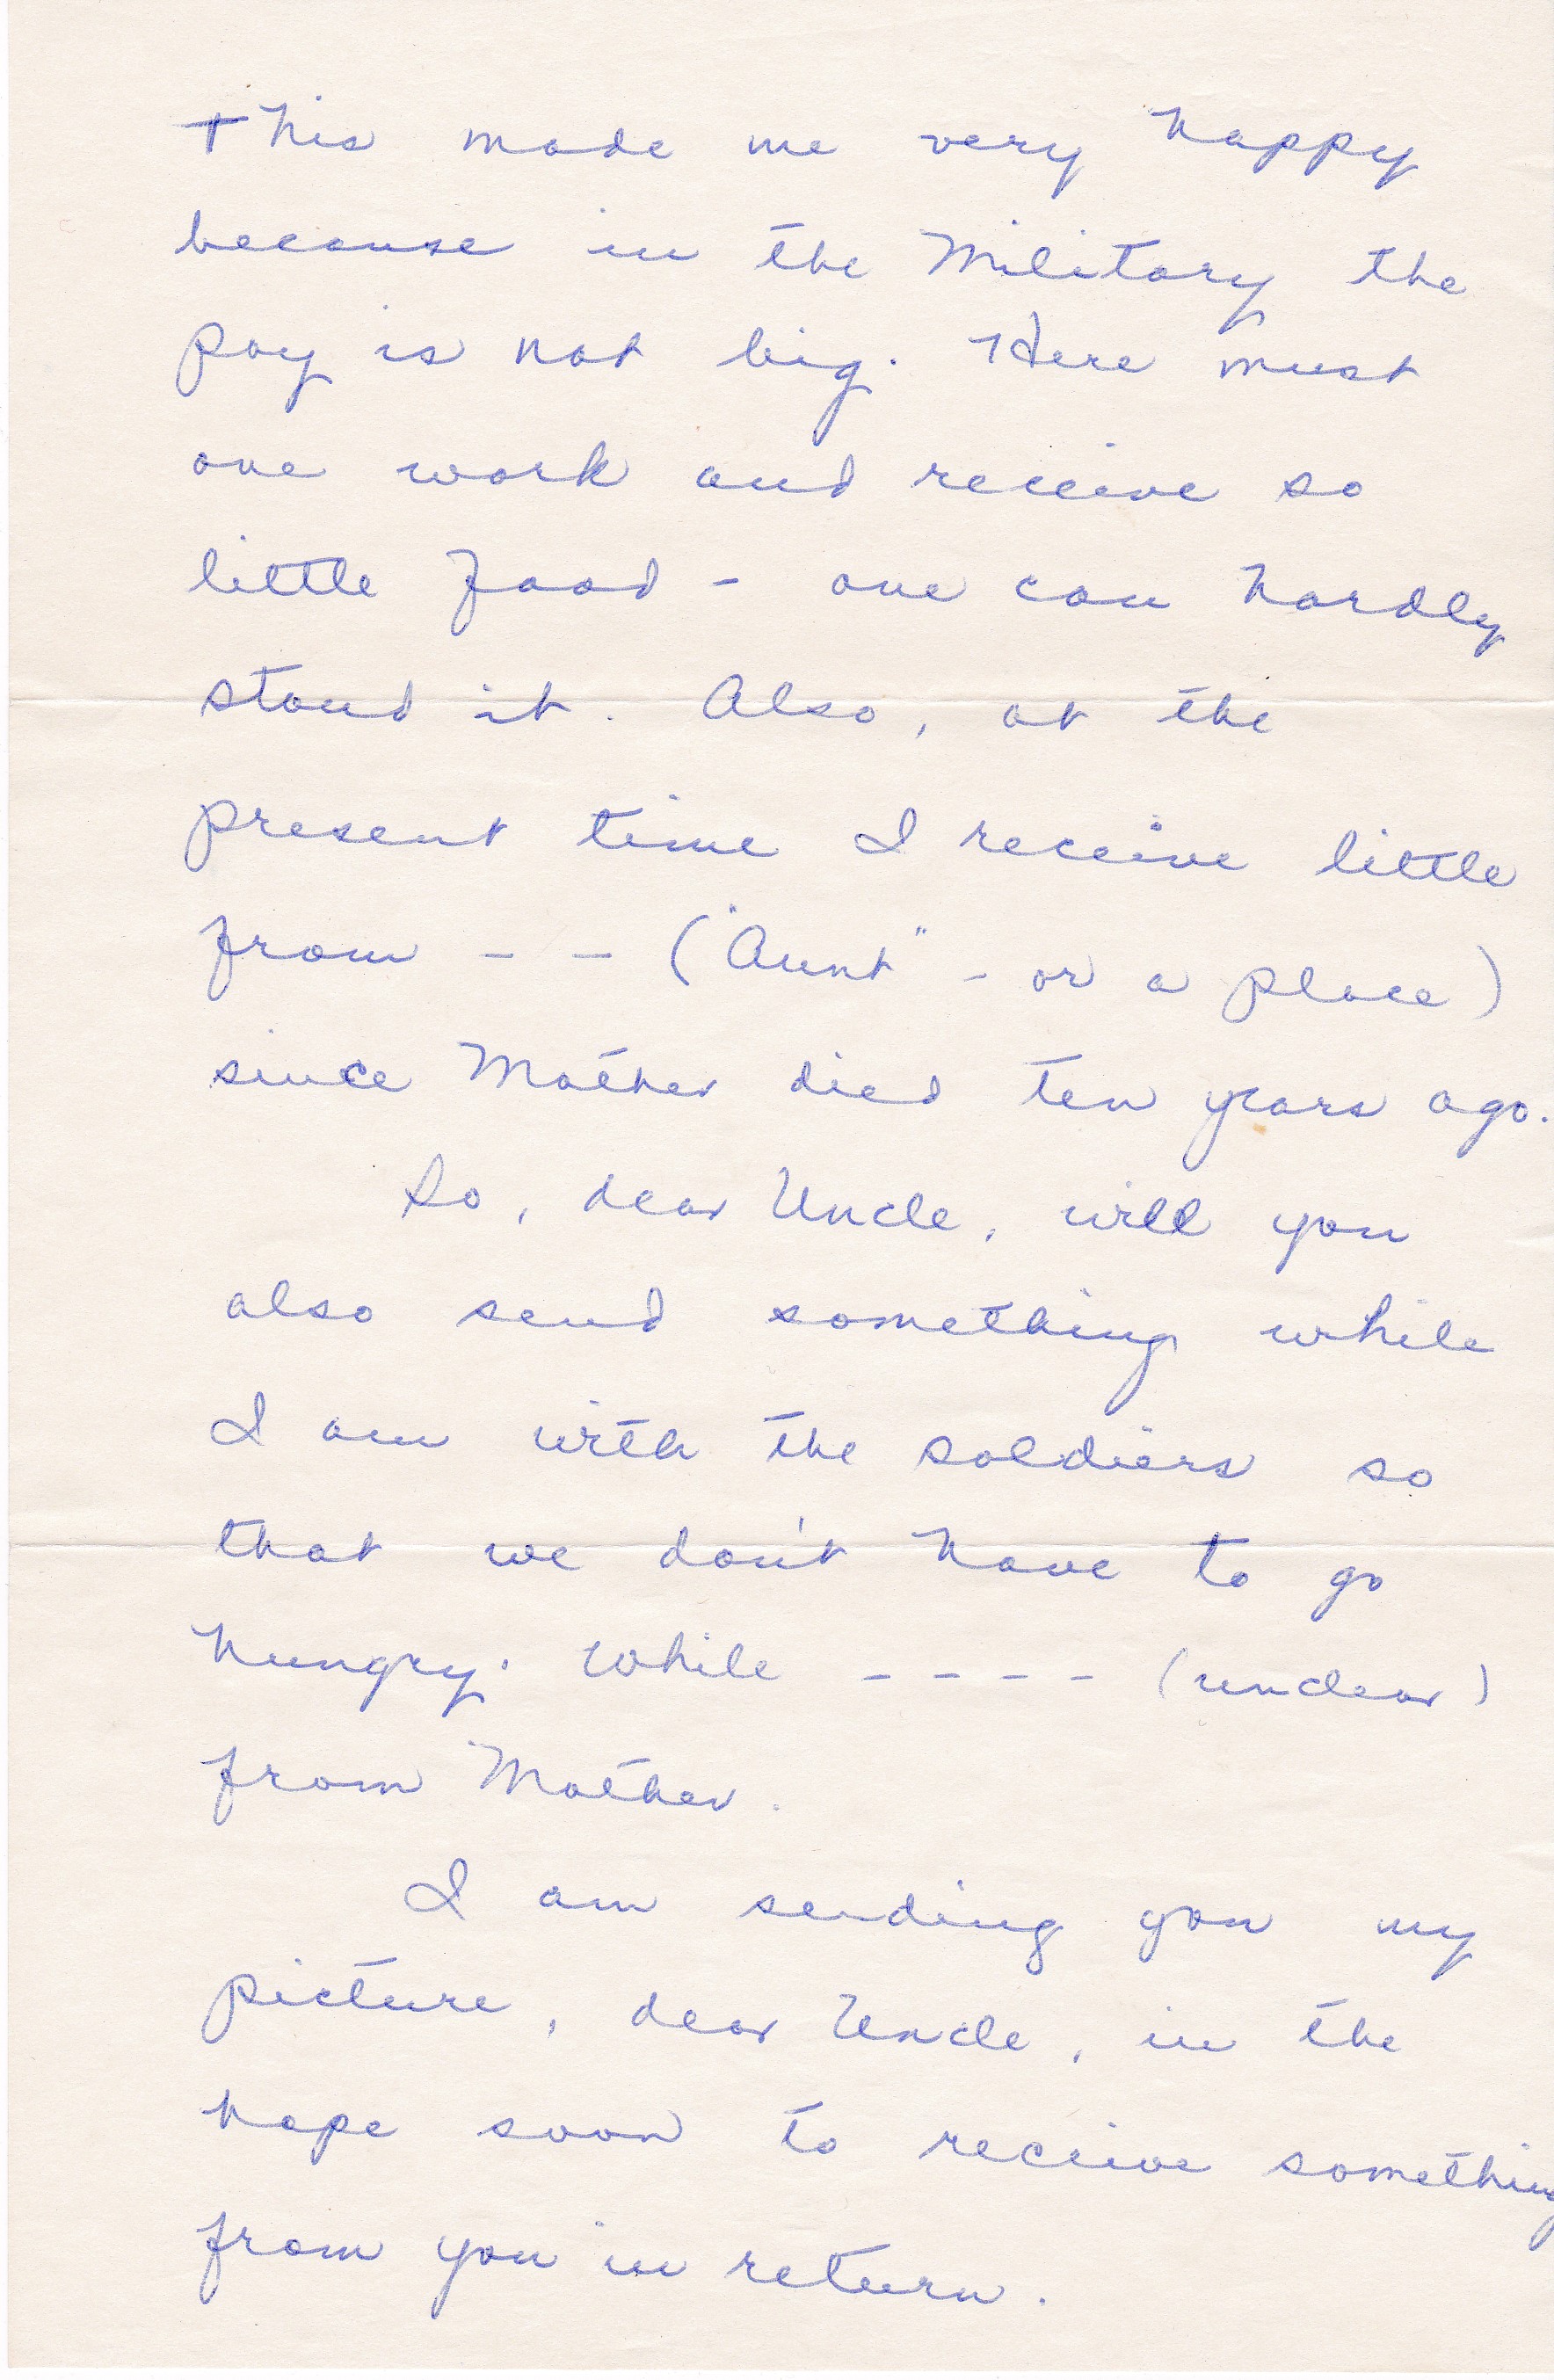 This made me very happy
because in the Military the
pay is not big. Here must
one work and receive so
little food - one can hardly
stand it. Also, at the
present time I receive little
from - - ("Aunt" - or a place)
since Mother died ten years ago.
So, dear Uncle, will you
also send something while
I am with the soldiers so
that we don't have to go
hungry. While - - - - (unclear)
from Mother.
I am sending you my
picture, dear Uncle, in the
hope soon to receive something
from you in return.